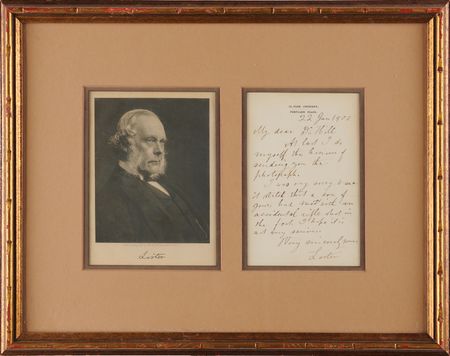 Lister
12, PARK CRESCENT,
PORTLAND PLACE.
22 Jan 1902
My dear Dr.
At last I do
myself the honour of
sending you the
photograph.
I was very sorry to see
it stated that a son of
yours had met with an
accidental rifle shot in
the foot. I hope it is
not very serious.
Very sincerely yours
Lister